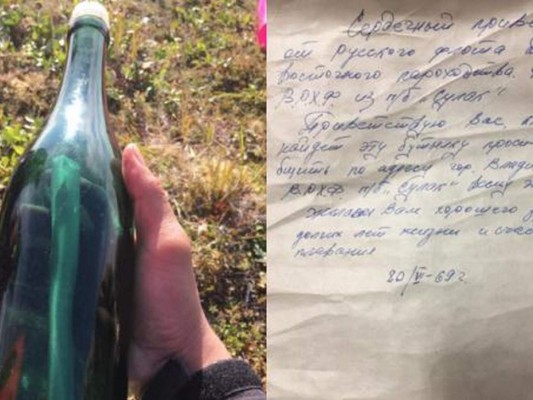 Сердечный приве
от русского флота
восточного пароходства.
ВРХФ из п/б „Сулак"
Приветствую Вас, к
найдет эту бутылку прос
бщить по адресу гор. Влади
ВРХФ п/б „Сулак" всему э
Желаем Вам хорошего з
долгих лет жизни и счас
плавания
20/VI-69 г.